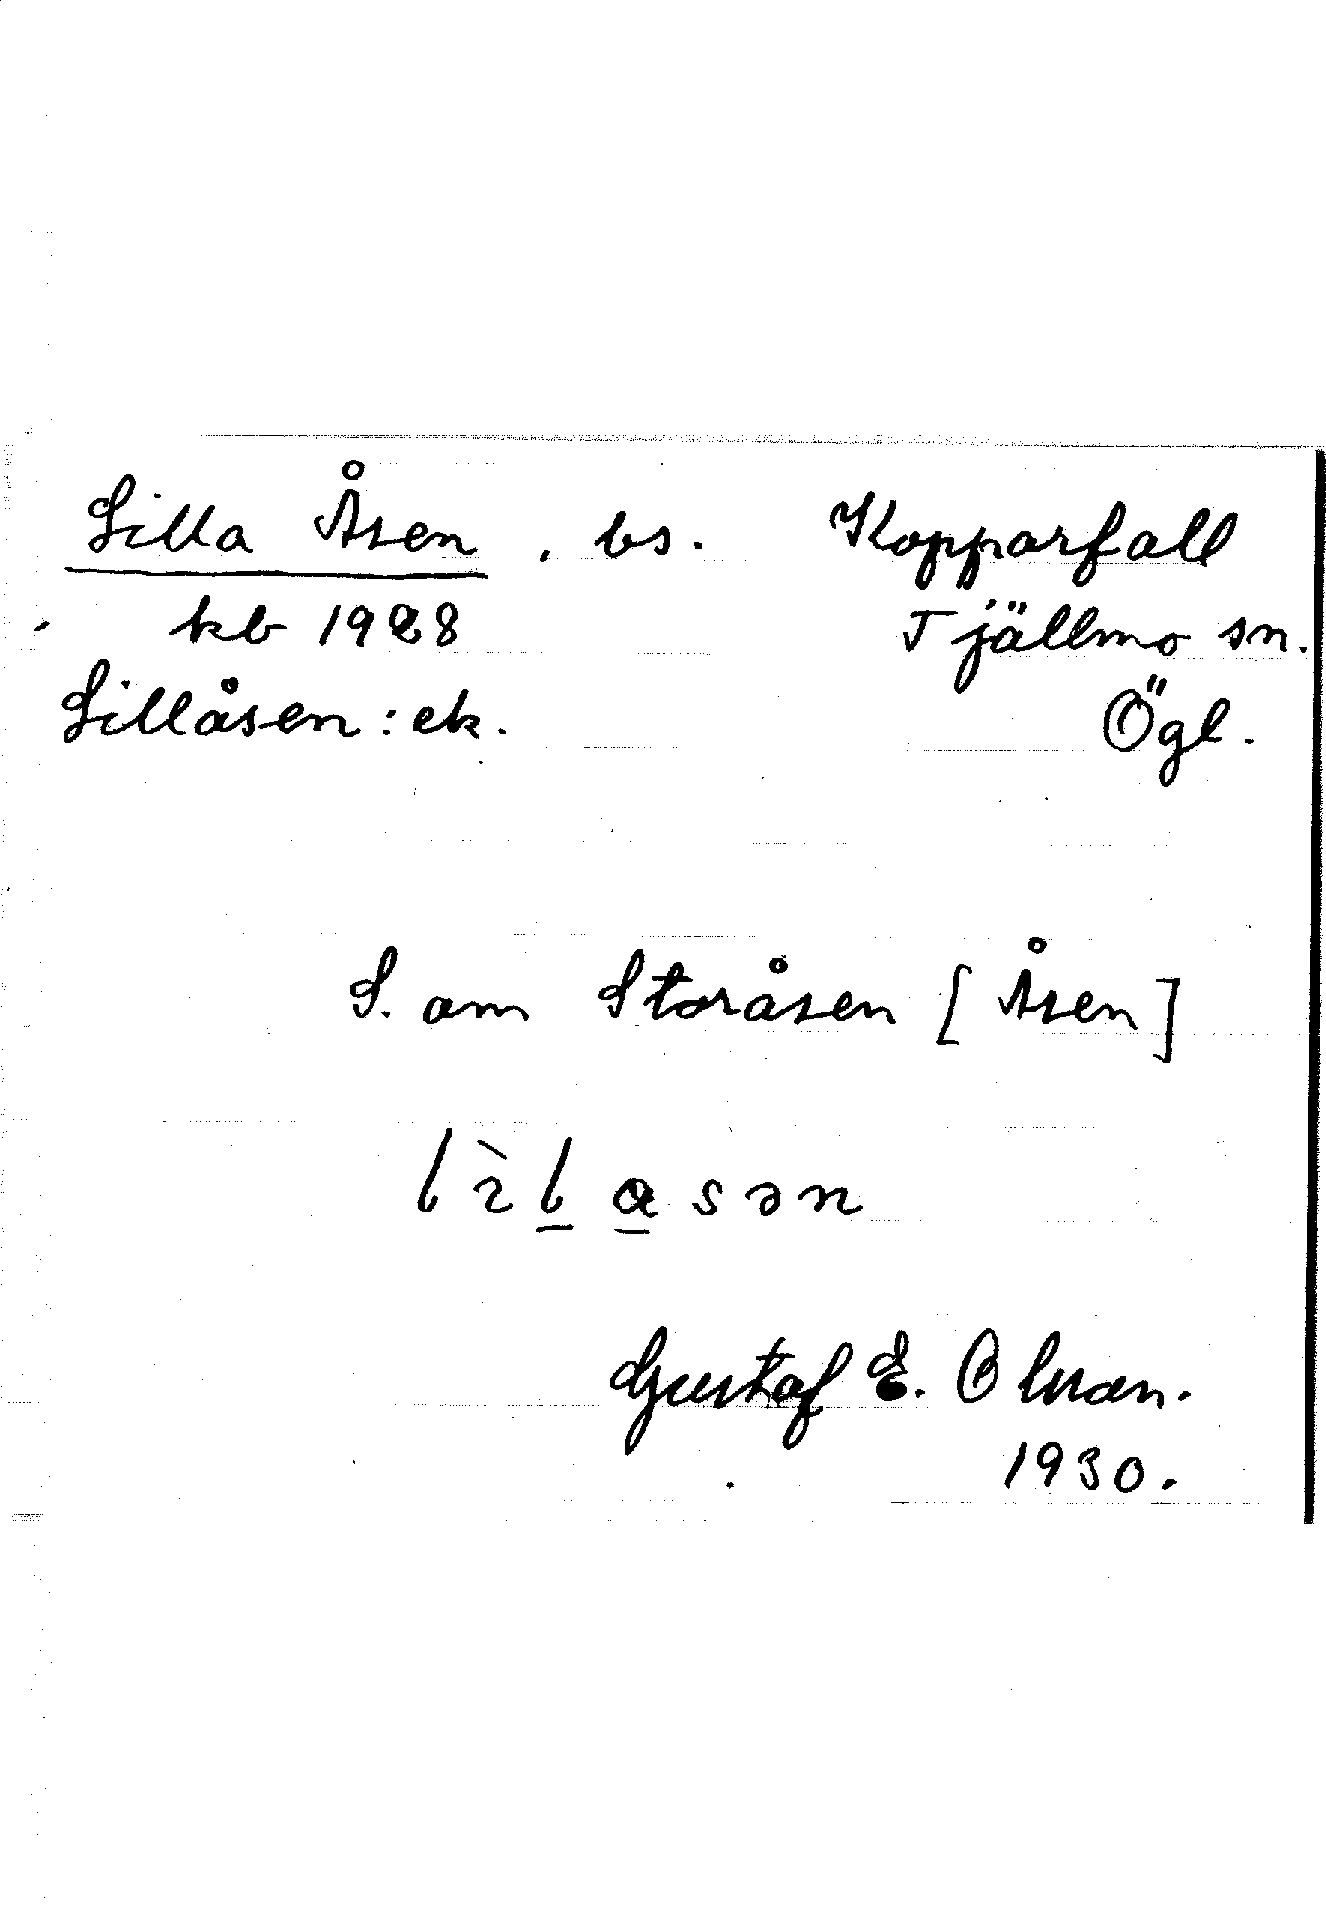 Lilla Åsen, bs. Kopparfall
kb 1928 Tjällmo sn.
Lillåsen: ek. Ögl.
S. om Storåsen [Åsen]
lìlasən
Gustaf E. Olman.
1930.